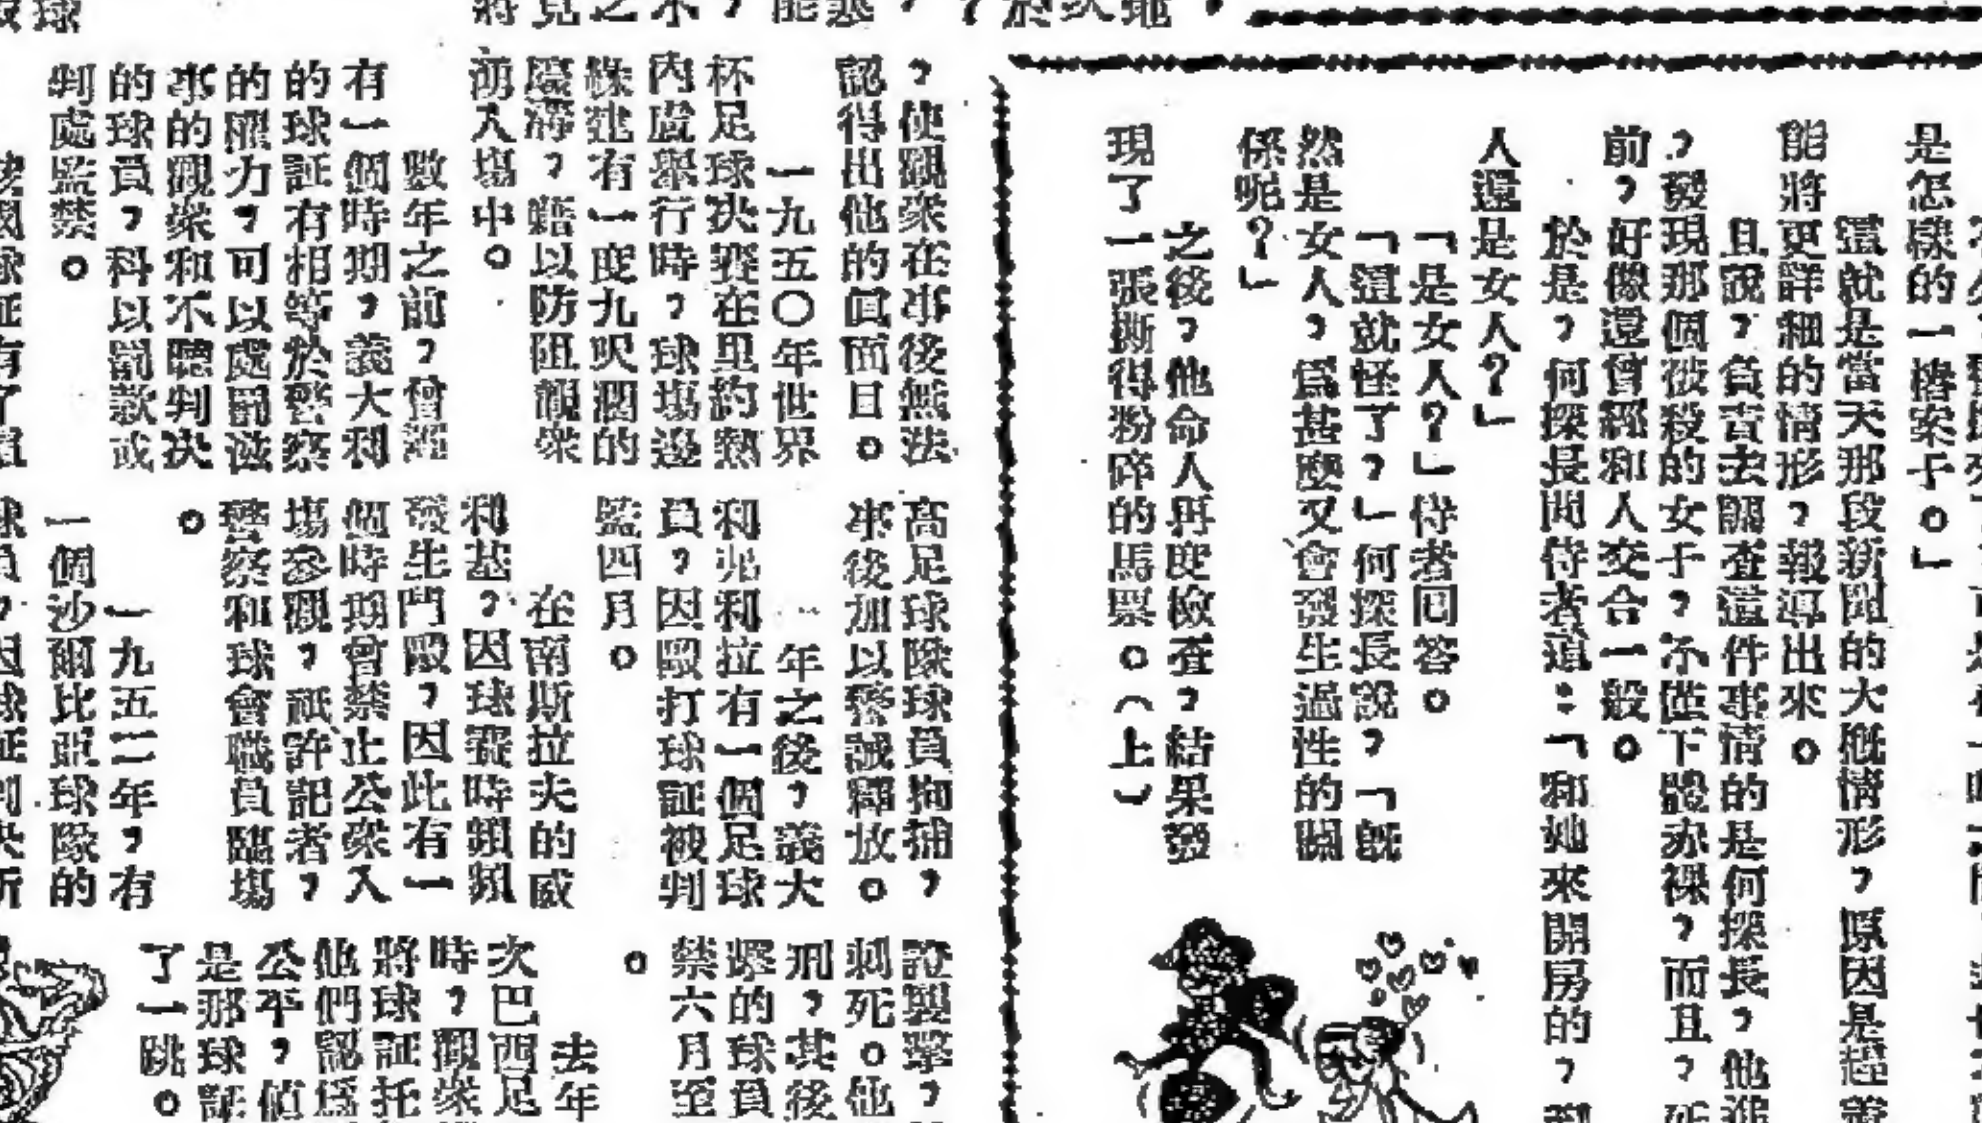 是怎樣的一樁案子。」
這就是當天那段新聞的大概情形，原因是
能將更詳細的情形，報導出來。
且說，負責去調查這件事情的是何探長，他
，發現那個被殺的女子，下體赤裸，而且，
前，好像還曾經和人交合一般。
於是，何探長問侍者道：「和她來開房的，
人還是女人？」
「是女人？」侍者回答。
「這就怪了？」何探長說，「既
然是女人，爲甚麼又會發生過性的關
係呢？」
之後，他命人再度檢查，結果發
現了一張撕得粉碎的馬票。（上）
，使觀衆在事後無法
認得出他的眞面目。
一九五〇年世界
杯足球決賽在里約熱
內盧舉行時，球場邊
緣建有一度九呎濶的
壕溝，藉以防阻觀衆
湧入場中。
數年之前，曾經
有一個時期，義大利
的球証有相等於警察
的權力，可以處罰滋
事的觀衆和不聽判决
的球員，科以罰款或
判處監禁。
有了
高足球隊球員拘捕，
事後加以警誡釋放。
年之後，義大
利弗利拉有一個足球
員，因毆打球証被判
監四月。
在南斯拉夫的威
利基，因球賽時頻頻
發生鬥毆，因此有一
個時期曾禁止公衆入
場參觀，祇許記者，
警察和球會職員臨場
。
一九五二年，有
一個沙爾比亞球隊的
球員，因球証判决所
證襲擊，
刺死。他
刑，其後
擊的球員
禁六月至
。
去年
次巴西足
時，觀衆
將球証托
他們認爲
公平，値
是那球証
了一跳。